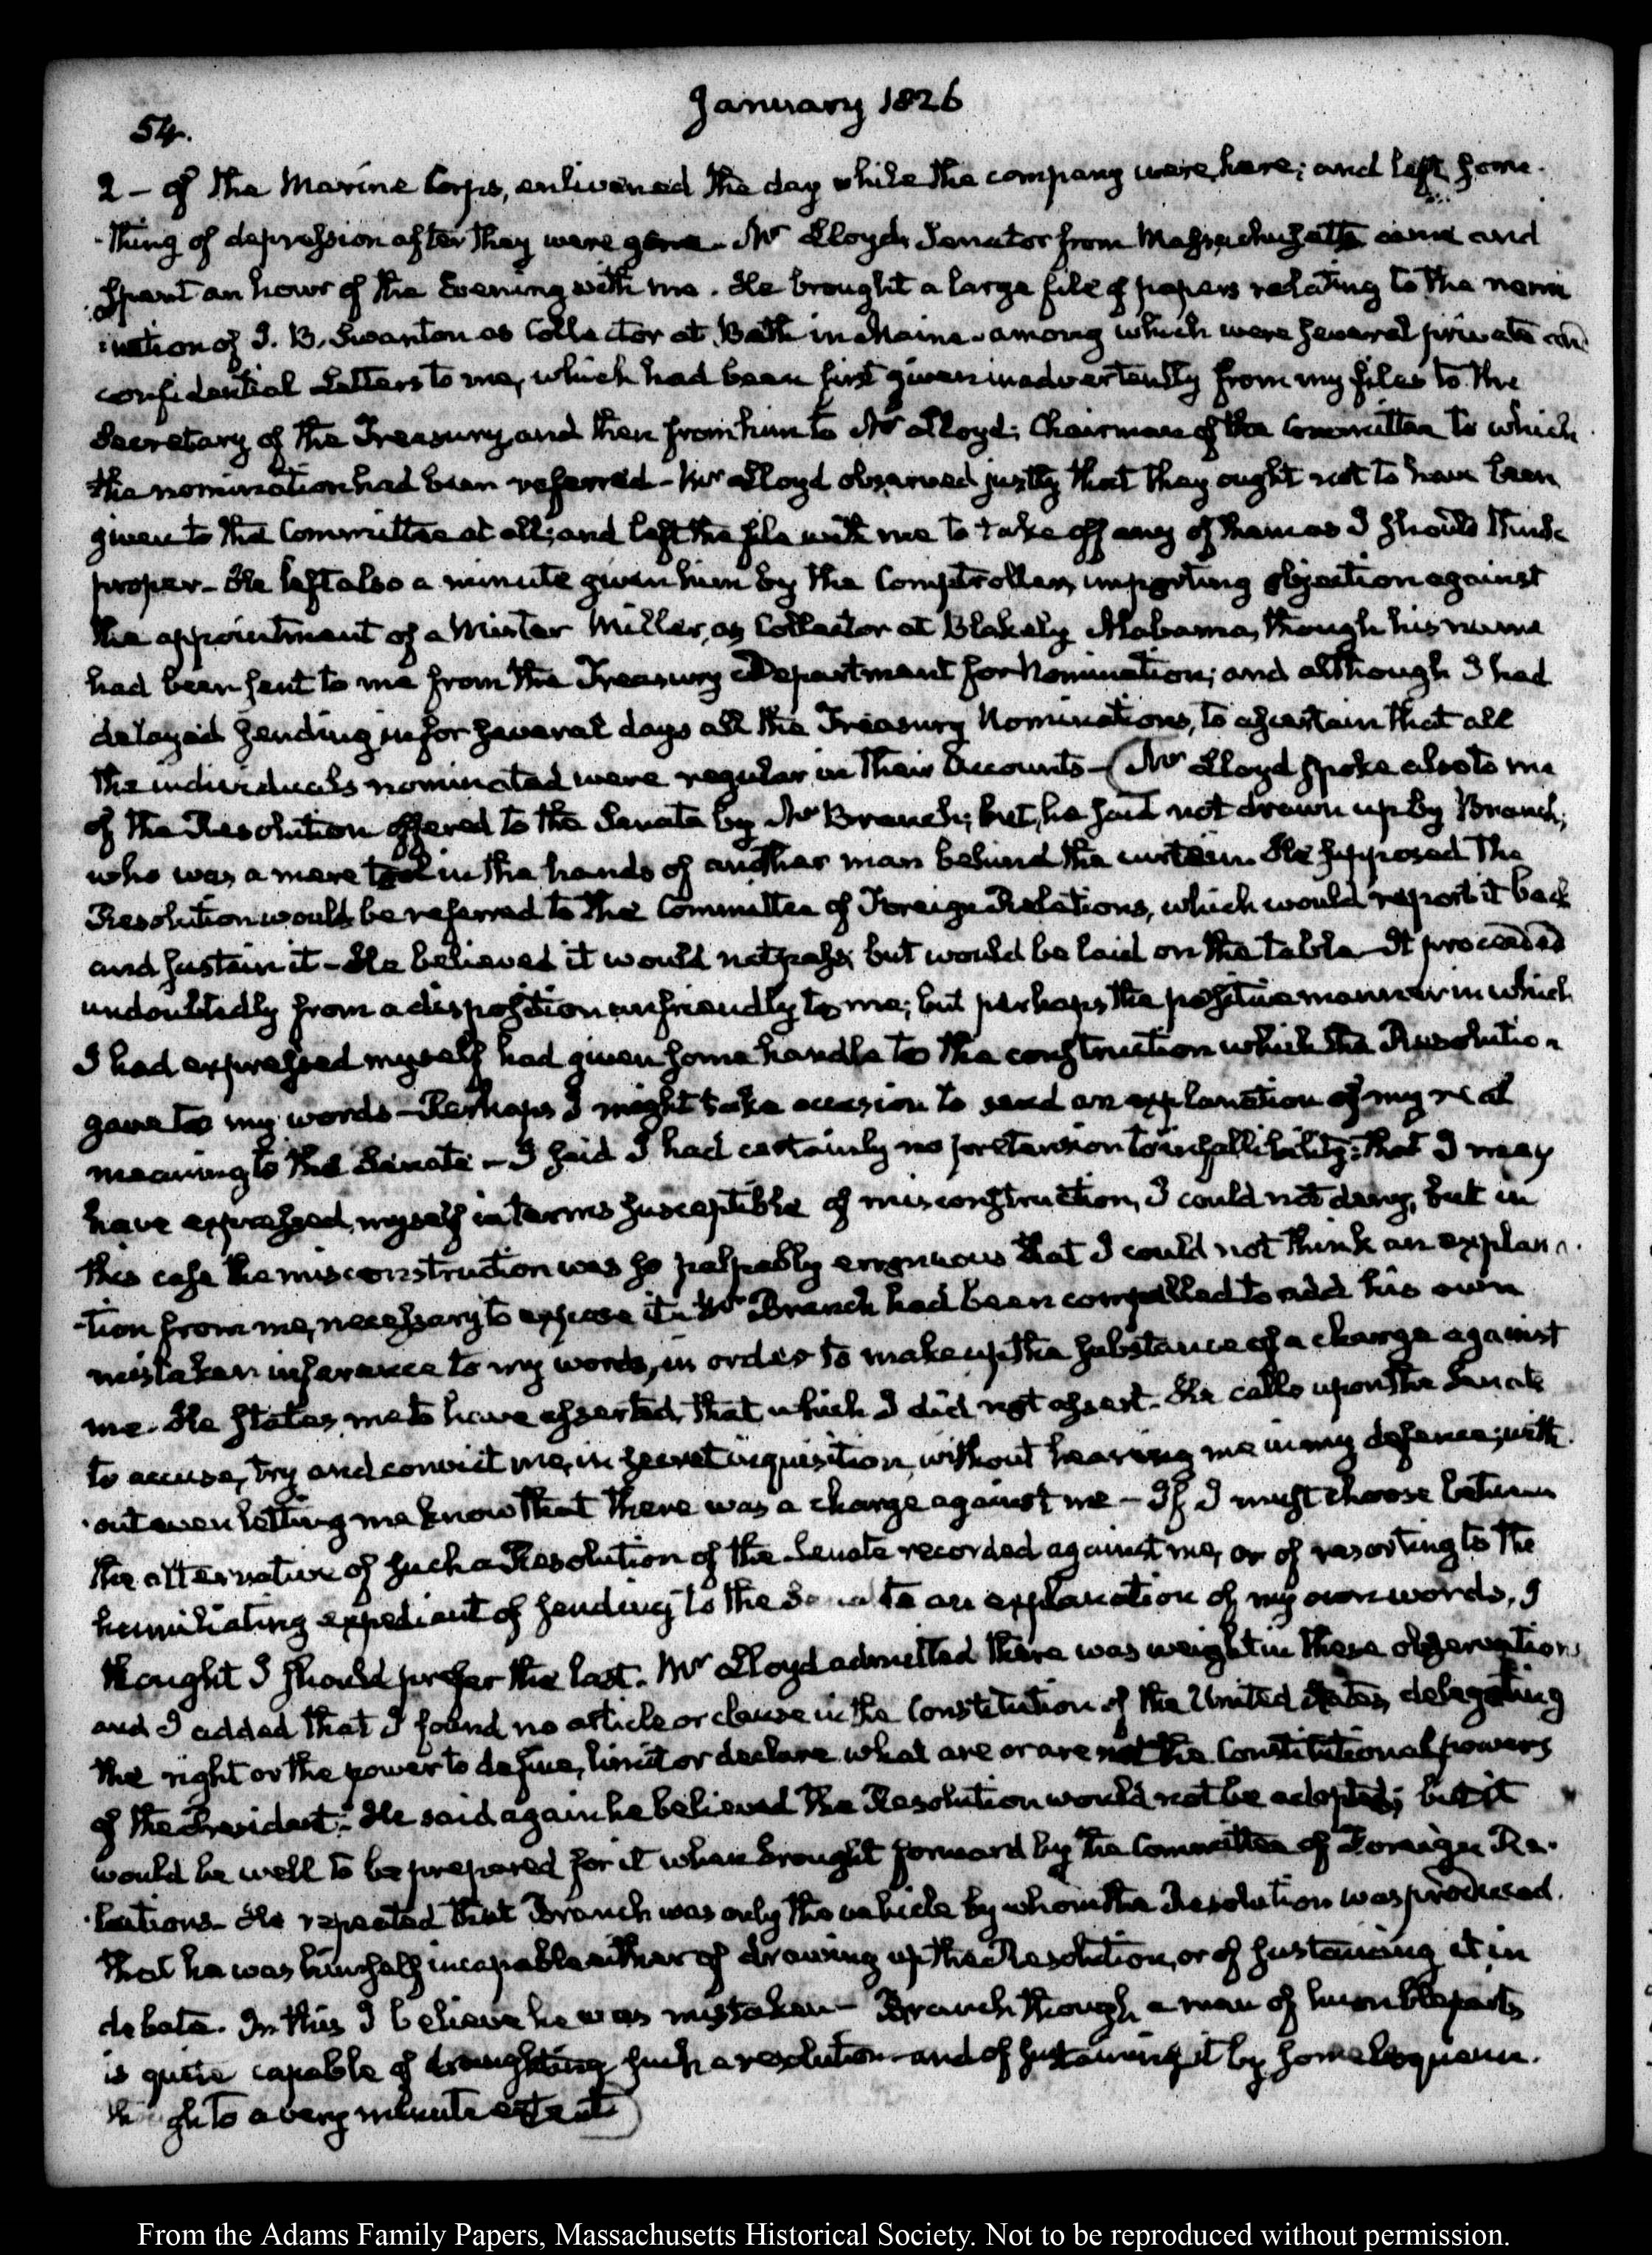 January 1826
54.
2 – of the Marine Corps, enlivened the day while the company were here; and left some-
-thing of depression after they were gone. Mr Lloyd, Senator from Massachusetts came and
spent an hour of the Evening with me. He brought a large file of papers relating to the nomi
ination of J. B. Swanton as Collector at Bath in Maine – among which were several private and
confidential Letters to me, which had been first given inadvertently from my files to the
Secretary of the Treasury, and then from him to Mr Lloyd; Chairman of the Committee to which
the nomination had been referred – Mr Lloyd observed justly that they ought not to have been
given to the Committee at all; and left the file with me to take off any of them as I should think
proper – He left also a minute given him by the Comptroller, importing objection against
the appointment of a Mister Miller, as Collector at Blakely Alabama, though his name
had been sent to me from the Treasury Department for Nomination; and although I had
delayed sending in for several days all the Treasury Nominations, to ascertain that all
the individuals nominated were regular in their Accounts – (Mr Lloyd spoke also to me
of the Resolution offered to the Senate by Mr Branch; but, he said not drawn up by Branch,
who was a mere tool in the hands of another man behind the curtain. He supposed the
Resolution would be referred to the Committee of Foreign Relations, which would report it back
and sustain it – He believed it would not pass; but would be laid on the table – It proceeded
undoubtedly from a disposition unfriendly to me; but perhaps the positive manner in which
I had expressed myself had given some handle to the construction which the Resolution
gave to my words – Perhaps I might take occasion to send an explanation of my real
meaning to the Senate – I said I had certainly no pretension to infallibility: that I may
have expressed myself in terms susceptible of misconstruction, I could not deny, but in
this case the misconstruction was so palpably erroneous that I could not think an explana-
-tion from me, necessary to expose it. Mr Branch had been compelled to add his own
mistaken inference to my words, in order to make up the substance of a charge against
me. He states me to have asserted, that which I did not assert. He calls upon the Senate
to accuse, try and convict me, in secret inquisition, without hearing me in my defence; with-
-out even letting me know that there was a charge against me – If I must choose between
the alternative of such a Resolution of the Senate recorded against me, or of resorting to the
humiliating expedient of sending to the Senate an explanation of my own words, I
thought I should prefer the last. Mr Lloyd admitted there was weight in these observations
and I added that I found no article or clause in the Constitution of the United States, delegating
the right or the power to define, limit or declare what are or are not the Constitutional powers
of the President. He said again he believed the Resolution would not be adopted; but it
would be well to be prepared for it when brought forward by the Committee of Foreign Re-
-lations. He repeated that Branch was only the vehicle by whom the Resolution was produced.
that he was himself incapable either of drawing up the Resolution, or of sustaining it in
debate. In this I believe he was mistaken – Branch though a man of humble parts
is quite capable of draughting such a resolution and of sustaining it by some eloquence.
though to a very minute extent)
From the Adams Family Papers, Massachusetts Historical Society. Not to be reproduced without permission.